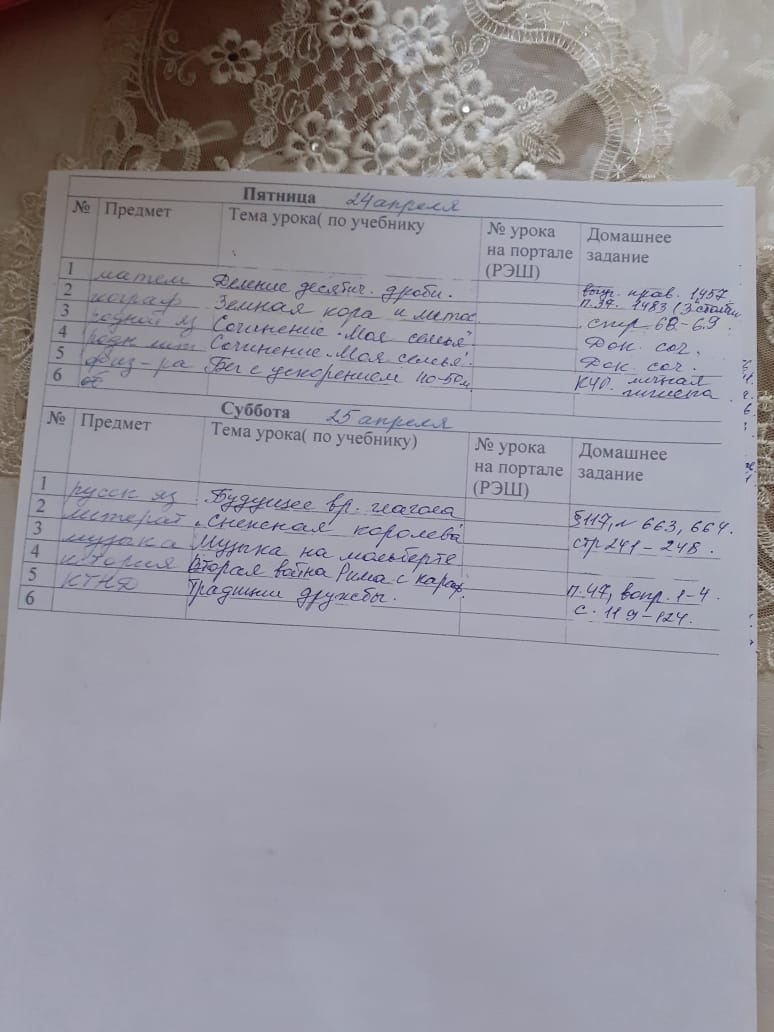 Пятница 24 апреля
№ Предмет Тема урока( по учебнику № урока на портале (РЭШ) Домашнее задание
1 матем Деление десятич. дроби. вопр. прав. 1457
2 Земная кора и литос п. 37. 1483 (3 столби
3 родной яз Сочинение „Моя семья" стр 68-69.
4 родн лит Сочинение „Моя семья". Док. соч.
5 физ-ра Бег с ускорением 40-50м. Док. соч.
6 об КЧО. личная гигиена
Суббота 25 апреля
№ Предмет Тема урока( по учебнику) № урока на портале (РЭШ) Домашнее задание
1 русск яз Будущее вр. глагола
2 литерат „Снежная королева" §117, № 663, 664.
3 музыка Музыка на мольберте стр 241-248.
4 история Вторая война Рима с Карф.
5 Традиции дружбы. п. 47, вопр. 1-4.
6 с. 119-124.